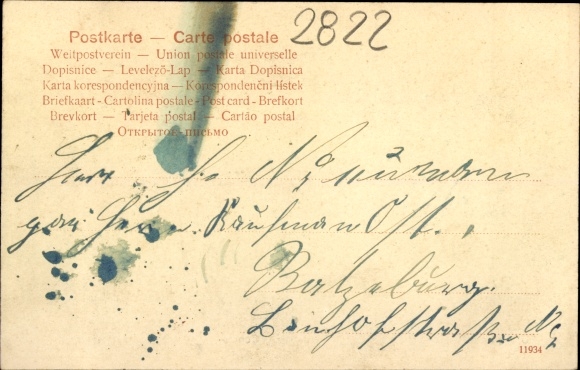 2822
Postkarte — Carte postale
Weltpostverein — Union postale universelle
Dopisnice — Levelező-Lap — Karta Dopisnica
Karta korespondencyjna — Korespondenční lístek
Briefkaart - Cartolina postale - Post card - Brefkort
Brevkort — Tarjeta postal — Cartão postal
Открытое письмо
Herr H. Neumann
Herrn Kaufman Ost.
Ratzeburg.
Bahnhofstraße No
11934